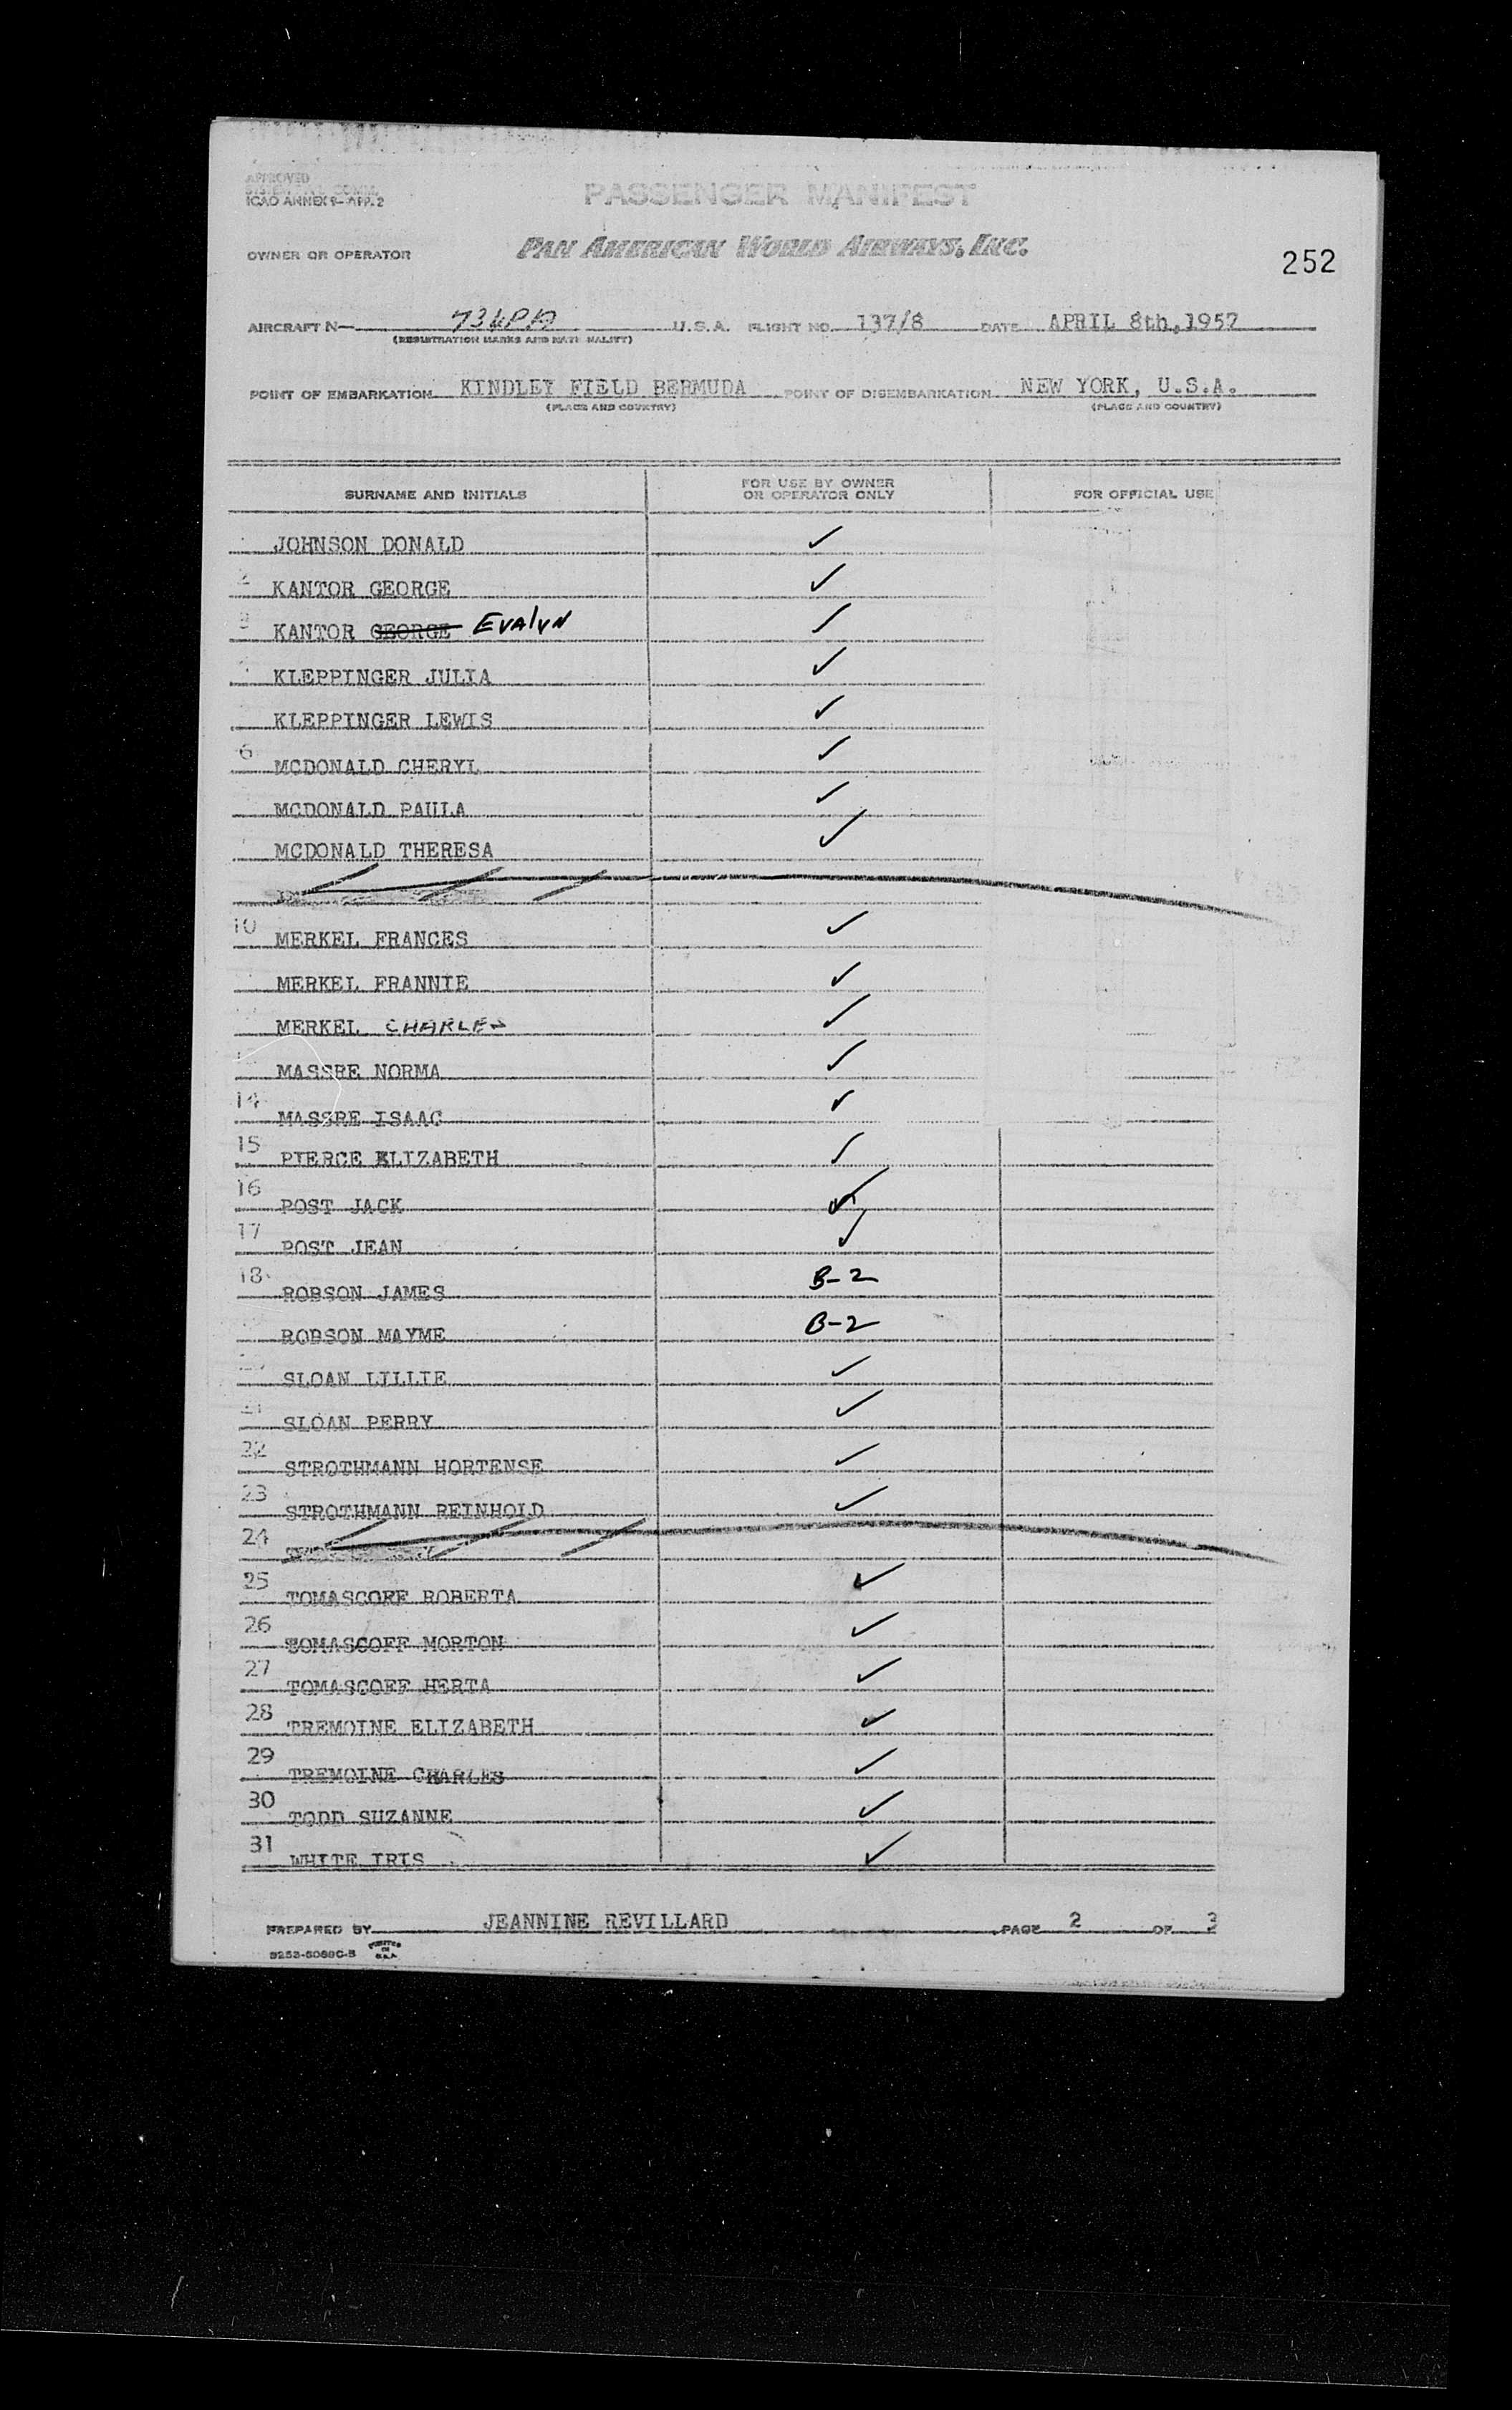 APPROVED
ICAO ANNEX 9-APP. 2
PASSENGER MANIFEST
OWNER OR OPERATOR
PAN AMERICAN WORLD AIRWAYS, INC.
252
AIRCRAFT N— U.S.A. FLIGHT NO. 137/8 DATE APRIL 8th, 1957
(REGISTRATION MARKS AND NATIONALITY)
POINT OF EMBARKATION KINDLEY FIELD BERMUDA POINT OF DISEMBARKATION NEW YORK, U.S.A.
(PLACE AND COUNTRY) (PLACE AND COUNTRY)
SURNAME AND INITIALS FOR USE BY OWNER OR OPERATOR ONLY FOR OFFICIAL USE
JOHNSON DONALD ✓
KANTOR GEORGE ✓
KANTOR GEORGE EVAlyN ✓
KLEPPINGER JULIA ✓
KLEPPINGER LEWIS ✓
6 MCDONALD CHERYL ✓
MCDONALD PAULA ✓
MCDONALD THERESA ✓
10 MERKEL FRANCES ✓
MERKEL FRANNIE ✓
MERKEL CHARLES ✓
MASSRE NORMA ✓
14 MASSRE ISAAC ✓
15 PIERCE ELIZABETH ✓
16 POST JACK ✓
17 POST JEAN ✓
18 ROBSON JAMES B-2
ROBSON MAYME B-2
SLOAN LILLIE ✓
21 SLOAN PERRY ✓
22 STROTHMANN HORTENSE ✓
23 STROTHMANN REINHOLD ✓
24
25 TOMASCOFF ROBERTA ✓
26 TOMASCOFF MORTON ✓
27 TOMASCOFF HERTA ✓
28 TREMOINE ELIZABETH ✓
29 TREMOINE CHARLES ✓
30 TODD SUZANNE ✓
31 WHITE IRIS ✓
PREPARED BY JEANNINE REVILLARD PAGE 2 OF 3
PRINTED IN U.S.A.